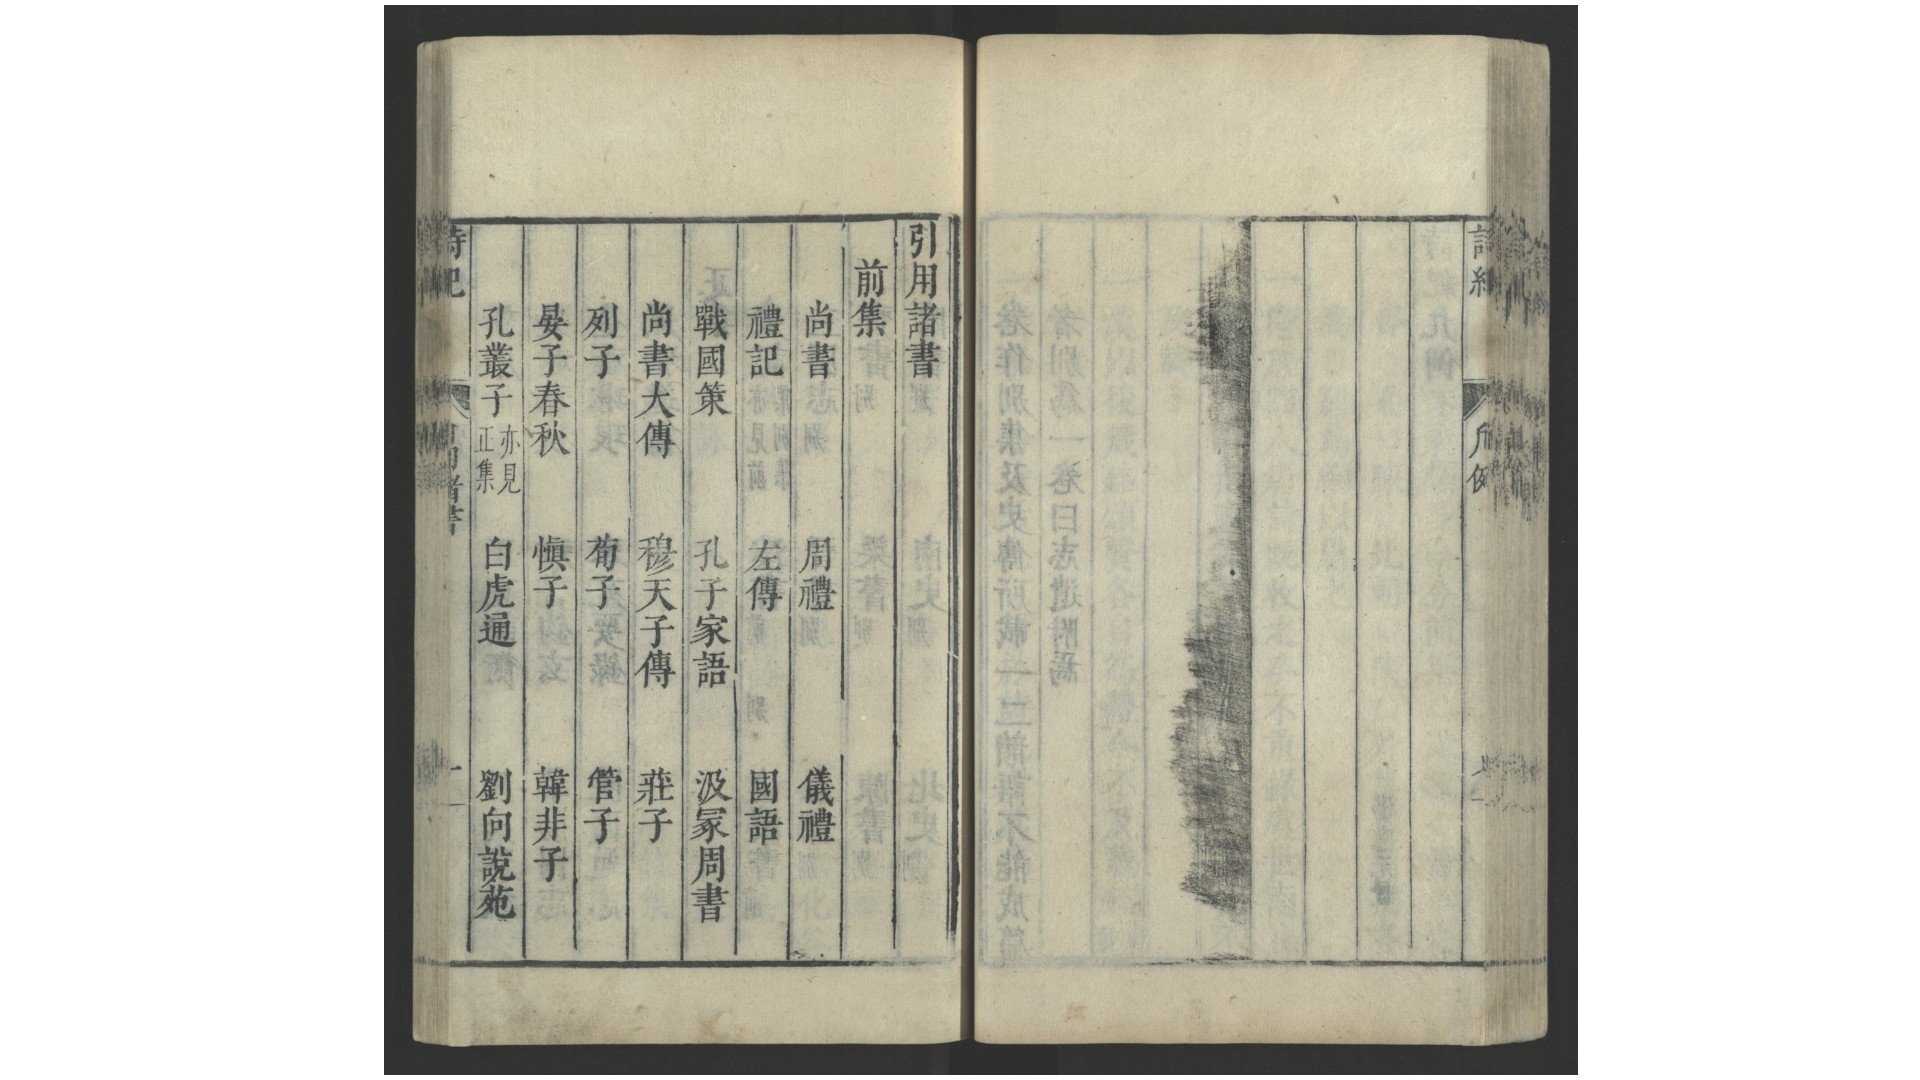 引用諸書
前集
尚書 周禮 儀禮
禮記 左傳 國語
戰國策 孔子家語 汲冢周書
尚書大傳 穆天子傳 莊子
列子 荀子 管子
晏子春秋 愼子 韓非子
孔叢子 亦見正集 白虎通 劉向說苑